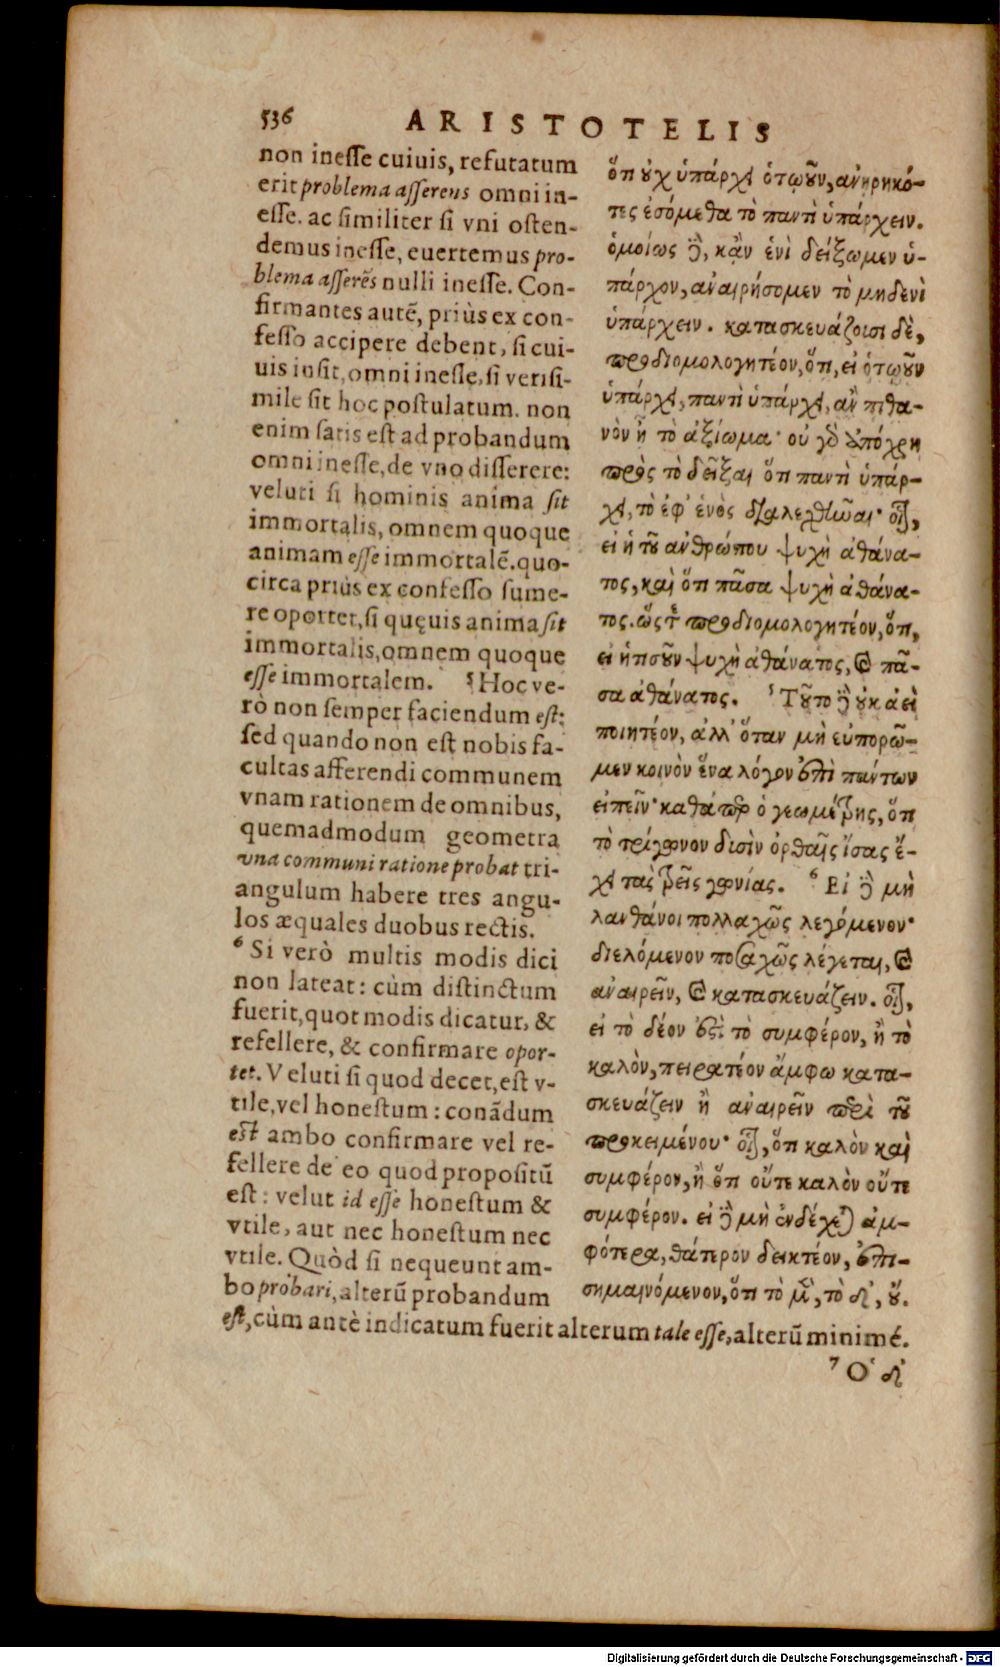 536 ARISTOTELIS
non inesse cuiuis, refutatum
erit problema asserens omni in-
esse. ac similiter si vni osten-
demus inesse, euertemus pro-
blema asserẽs nulli inesse. Con-
firmantes autẽ, priùs ex con-
fesso accipere debent, si cui-
uis insit, omni inesse, si verisi-
mile sit hoc postulatum. non
enim satis est ad probandum
omni inesse, de vno disserere:
veluti si hominis anima sit
immortalis, omnem quoque
animam esse immortalẽ. quo-
circa priùs ex confesso sume-
re oportet, si quęuis anima sit
immortalis, omnem quoque
esse immortalem. ⁵ Hoc ve-
rò non semper faciendum est:
sed quando non est nobis fa-
cultas afferendi communem
vnam rationem de omnibus,
quemadmodum geometra
vna communi ratione probat tri-
angulum habere tres angu-
los æquales duobus rectis.
⁶ Si verò multis modis dici
non lateat: cùm distinctum
fuerit, quot modis dicatur, &
refellere, & confirmare opor-
tet. Veluti si quod decet, est v-
tile, vel honestum: conãdum
est ambo confirmare vel re-
fellere de eo quod propositũ
est: velut id esse honestum &
vtile, aut nec honestum nec
vtile. Quòd si nequeunt am-
bo probari, alterũ probandum
est, cùm antè indicatum fuerit alterum tale esse, alterũ minimé.
ὅτι οὐχ ὑπάρχει ὁτῳοῦν, ἀνῃρηκό-
τες ἐσόμεθα τὸ παντὶ ὑπάρχειν.
ὁμοίως δὲ, κἂν ἑνὶ δείξωμεν ὑ-
πάρχον, ἀναιρήσομεν τὸ μηδενὶ
ὑπάρχειν. κατασκευάζοισι δὲ,
προδιομολογητέον, ὅτι, εἰ ὁτῳοῦν
ὑπάρχει, παντὶ ὑπάρχει, ἂν πιθα-
νὸν ᾖ τὸ ἀξίωμα· οὐ γὸ ἀπόχρη
πρὸς τὸ δεῖξαι ὅτι παντὶ ὑπάρ-
χει, τὸ ἐφ' ἑνὸς διαλεχθῆναι· οἷον,
εἰ ἡ τοῦ ἀνθρώπου ψυχὴ ἀθάνα-
τος, καὶ ὅτι πᾶσα ψυχὴ ἀθάνα-
τος. ὥστε προδιομολογητέον, ὅτι,
εἰ ἡτισοῦν ψυχὴ ἀθάνατος, καὶ πᾶ-
σα ἀθάνατος. ⁵ Τοῦτο δὲ οὐκ ἀεὶ
ποιητέον, ἀλλ' ὅταν μὴ εὐπορῶ-
μεν κοινὸν ἕνα λόγον ἐπὶ πάντων
εἰπεῖν· καθάπερ ὁ γεωμέτρης, ὅτι
τὸ τρίγωνον δυσὶν ὀρθαῖς ἴσας ἔ-
χει τὰς τρεῖς γωνίας. ⁶ Εἰ δὲ μὴ
λανθάνοι πολλαχῶς λεγόμενον·
διελόμενον ποσαχῶς λέγεται, καὶ
ἀναιρεῖν, καὶ κατασκευάζειν. οἷον,
εἰ τὸ δέον ἐστὶ τὸ συμφέρον, ἢ τὸ
καλὸν, πειρατέον ἄμφω κατα-
σκευάζειν ἢ ἀναιρεῖν περὶ τοῦ
προκειμένου· οἷον, ὅτι καλὸν καὶ
συμφέρον, ἢ ὅτι οὔτε καλὸν οὔτε
συμφέρον. εἰ δὲ μὴ ἐνδέχεται ἀμ-
φότερα, θάτερον δεικτέον, ἐπι-
σημαινόμενον, ὅτι τὸ μὲν, τὸ δ', οὔ.
⁷ Ὁ δ'
Digitalisierung gefördert durch die Deutsche Forschungsgemeinschaft - DFG